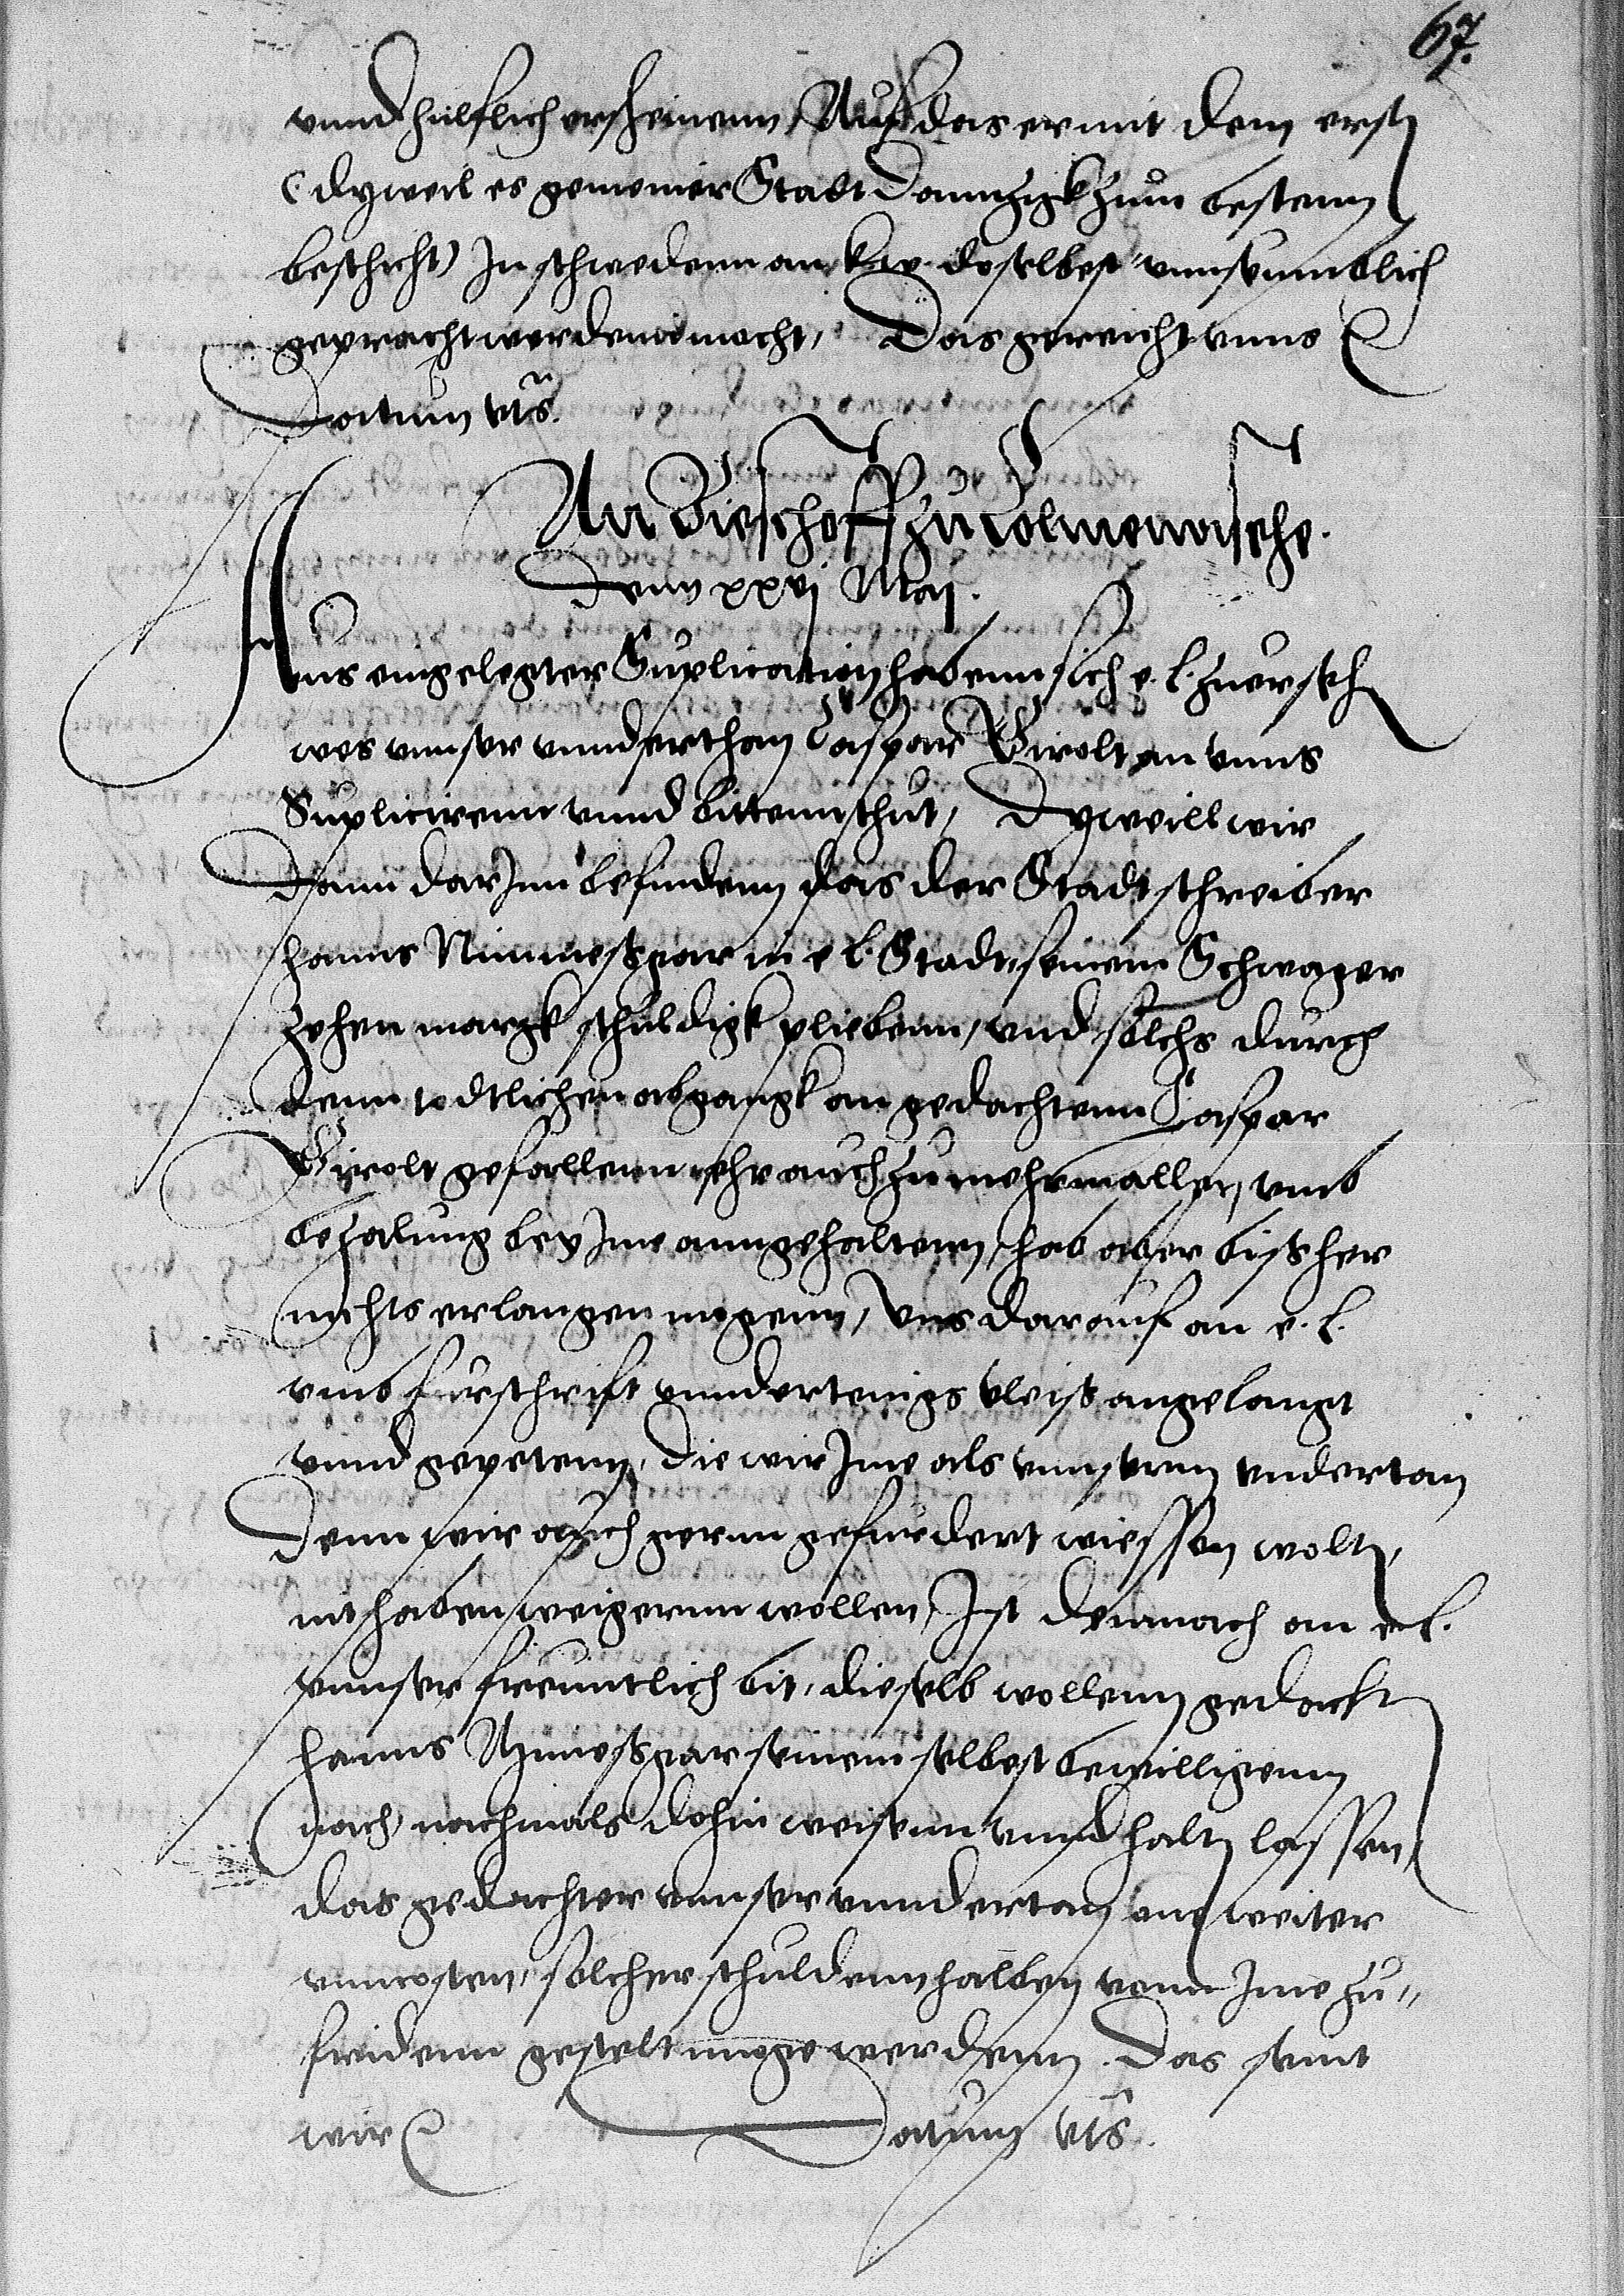 67.
vnnd hulflich erscheinenn, Auf das er mit dem erstn
(dyweil es gemeiner Stadt Danntzigk zum bestenn
beschicht) In schwedenn an k. w. doselbest vnnseumblich
gepracht werdenn mocht, Das gereicht vnns
Datum vts.
An Bieschoff zu Colmenische.
Denn xxvj Maij.
Aus eingelegter Suplication habenn sich e. l. zuersehn
wes vnnser vnnderthan Caspar Girolt an vnns
Suplicirenn vnnd bittenn thut, Dyweill wir
Dann darInn befindenn das der Stadtschreiber
hanns in e l. Stadt, seinem Schwager
zehen margk schuldigk pliebenn, vnd solchs durch
denn todtlichen abgangk an gedachtenn Caspar
Girolt gefallenn, ehr auch zu mehrmallen, vmb
bezalung bey Ime anngehaltenn, hab aber bissher
nichts erlangen mogenn, Vns darauf an e. l.
vmb furschrift vnndertenigs vleiss angelangt
vnnd gepetenn, die wir Ime als vnnserm vndertan
Denn wir auch gernn gefurdert wiessen woltn,
nit haben weigernn wollen, Ist demnach an e. l.
vnnser freuntlich bit, dieselb wollenn gedachtn
hanns seinem selbest bewilligenn
nach, nachmals dohin weisenn vnnd haltn lassen,
das gedachter vnnser vnndertan one weiter
vnncosten, solcher schuldenn halben vonn Ime zu„
fridenn gestelt moge werdenn. Das seint
wir Datum vts.